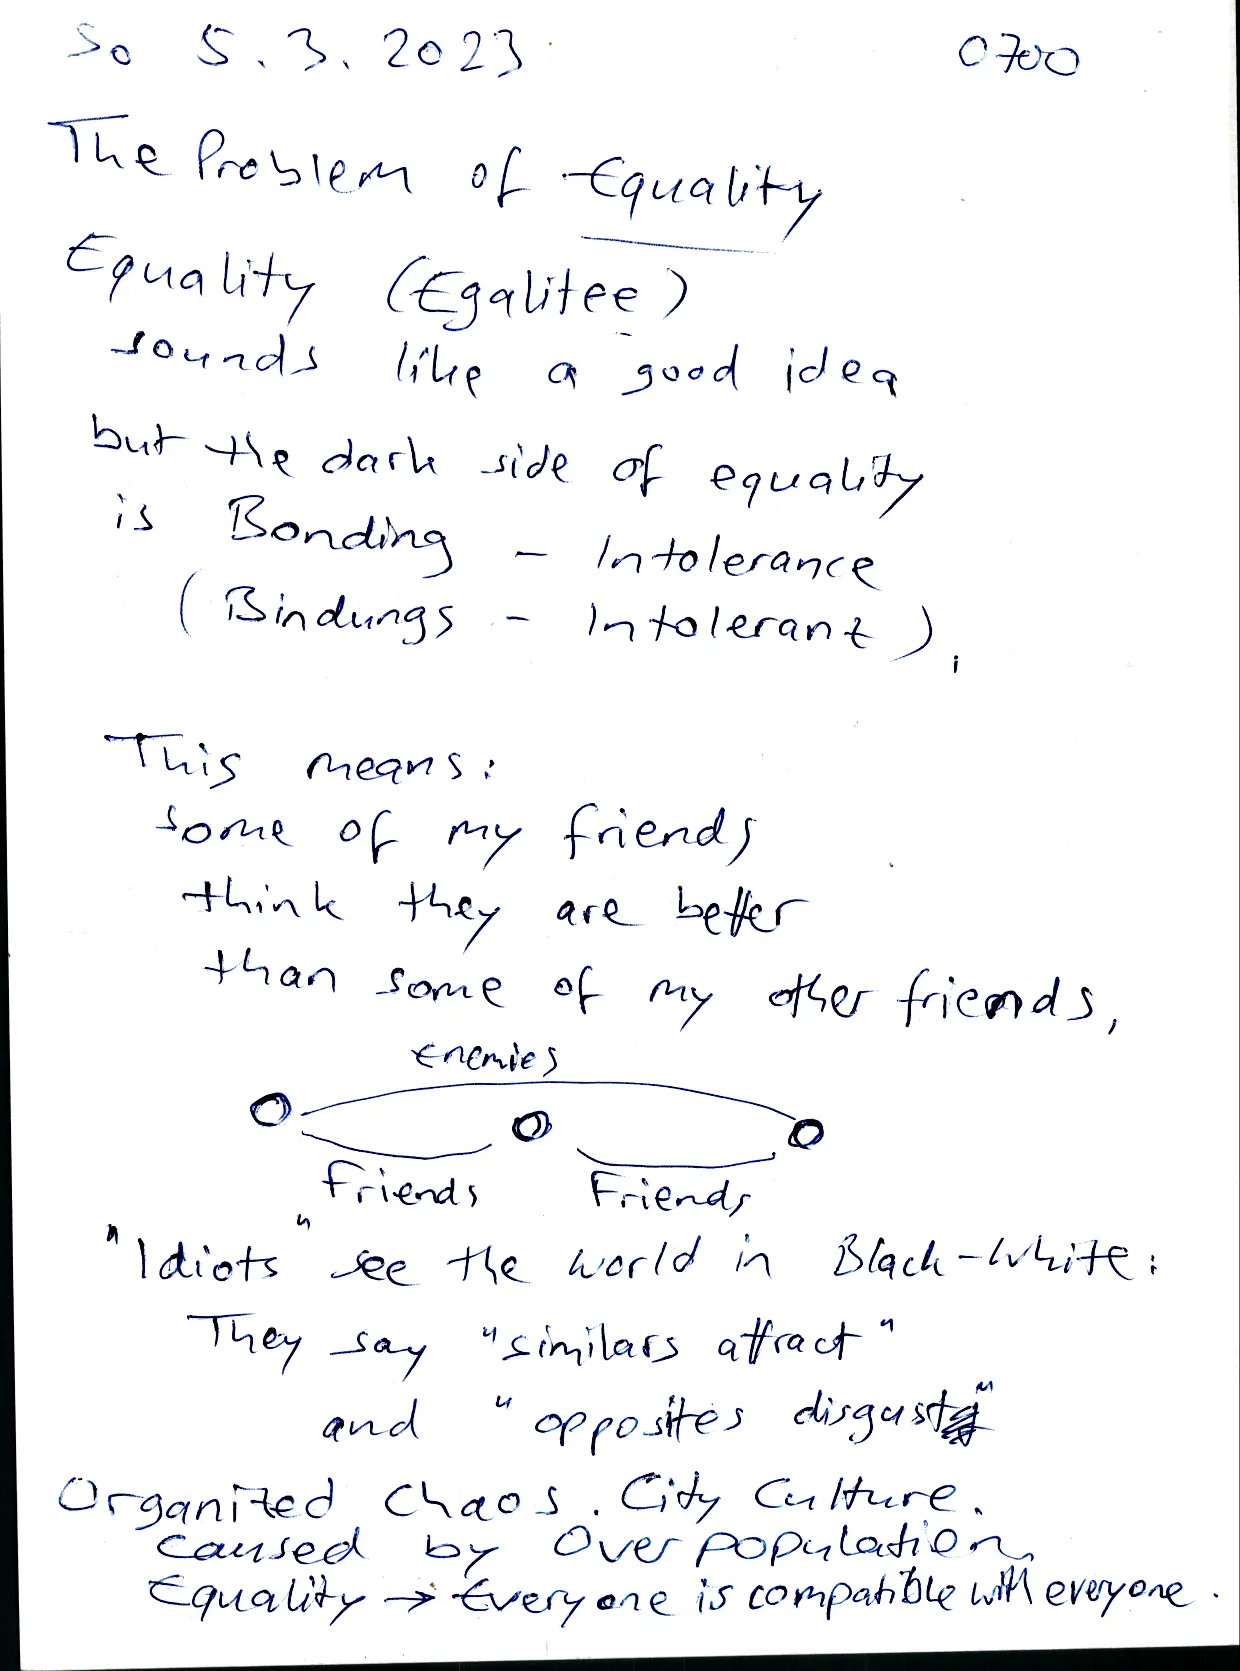 So 5.3.2023 0700
The Problem of Equality
Equality (Egalitee)
sounds like a good idea
but the dark side of equality
is Bonding - Intolerance
(Bindungs - Intoleranz),
This means:
some of my friends
think they are better
than some of my other friends,
Enemies
Friends Friends
"Idiots" see the world in Black-White:
They say "similars attract"
and "opposites disgust"
Organized Chaos. City Culture.
Caused by Over population
Equality → Everyone is compatible with everyone.